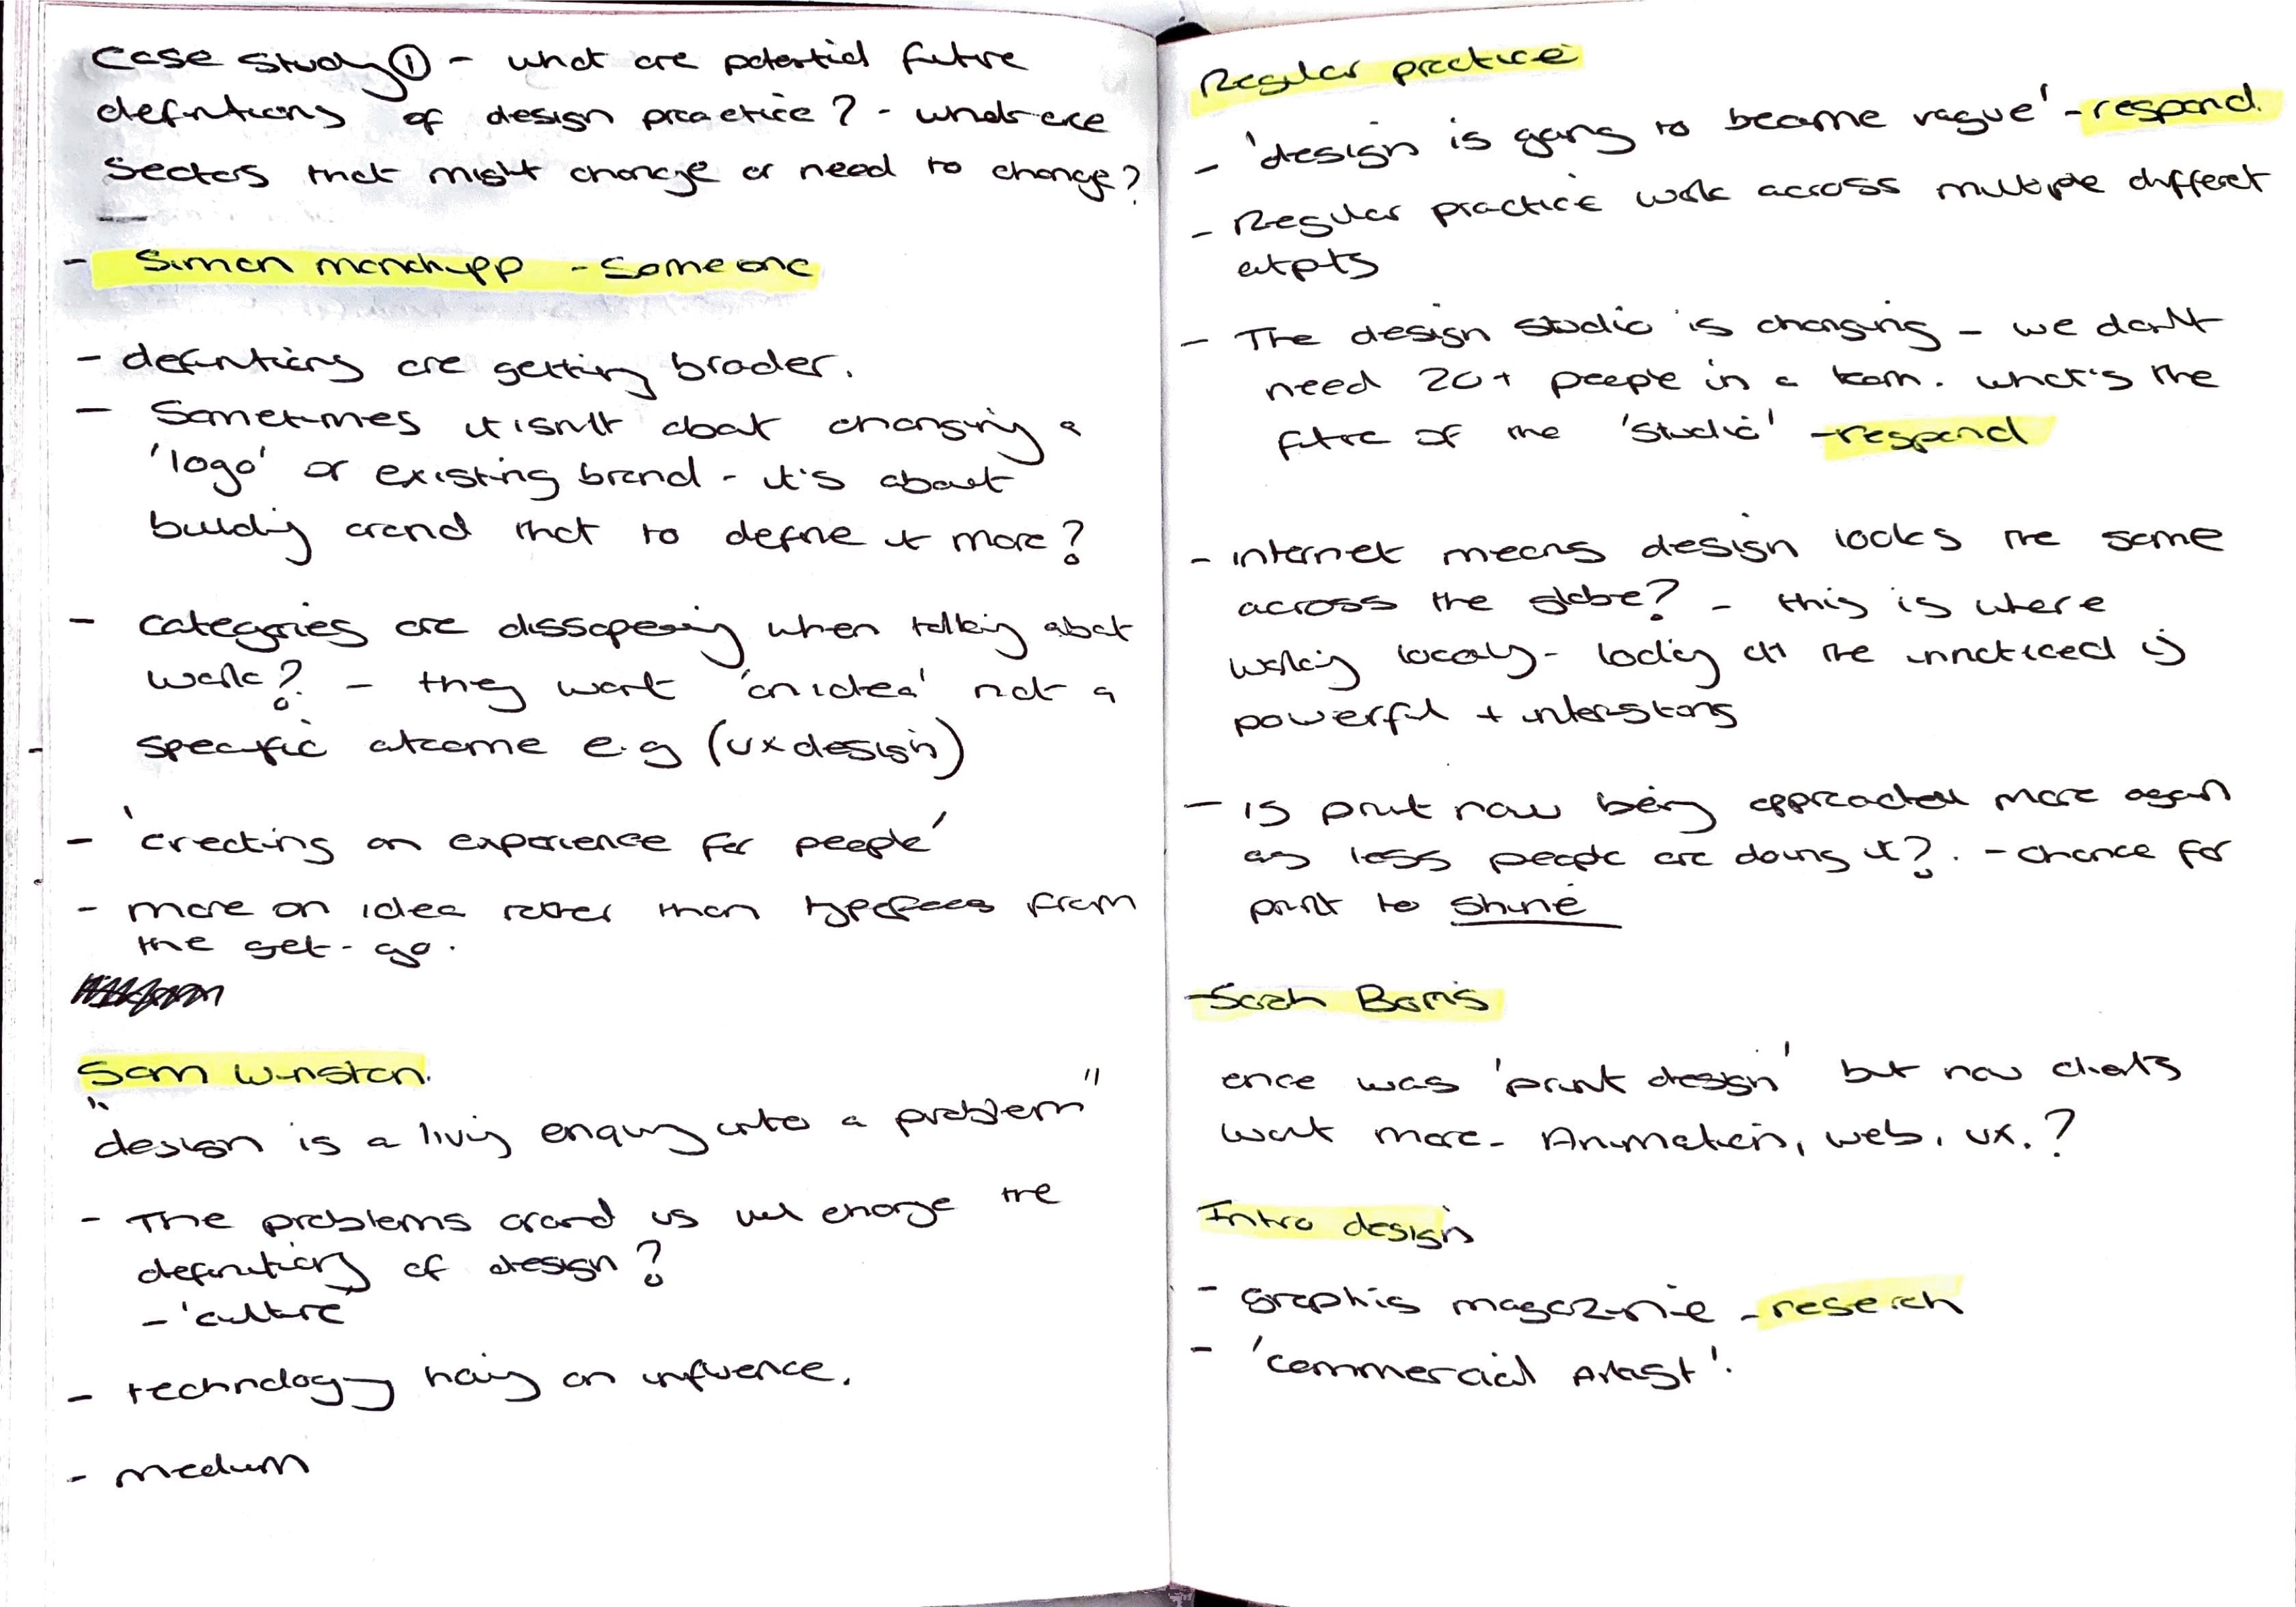 Case Study ① - what are potential future
definitions of design practice? - what are
Sectors that might change or need to change?
- Simon manchipp - Someone
- definitions are getting broader.
- Sometimes it isn't about changing a
'logo' or existing brand - it's about
building around that to define it more?
- categories are dissapearing when talking about
work? - they want 'an idea' not a
specific outcome e.g (ux design)
- 'creating an experience for people'
- more an idea rather than typefaces from
the get-go.
Sam Winston.
"design is a living enquiry into a problem"
- The problems around us will change the
definitions of design?
- 'culture'
- technology having an influence.
- medium
Regular practice
- 'design is going to become vague' - respond.
- Regular practice work across multiple different
outputs
- The design studio is changing - we don't
need 20+ people in a team. what's the
future of the 'studio' - respond
- internet means design looks the same
across the globe? - this is where
working locally - looking at the unnoticed is
powerful + interesting
- is print now being appreciated more again
as less people are doing it? - chance for
print to shine
- Sarah Boris
once was 'print design' but now clients
want more - Animation, web, ux.?
Intro design
- graphis magazine - reserch
- 'commercial Artist'.